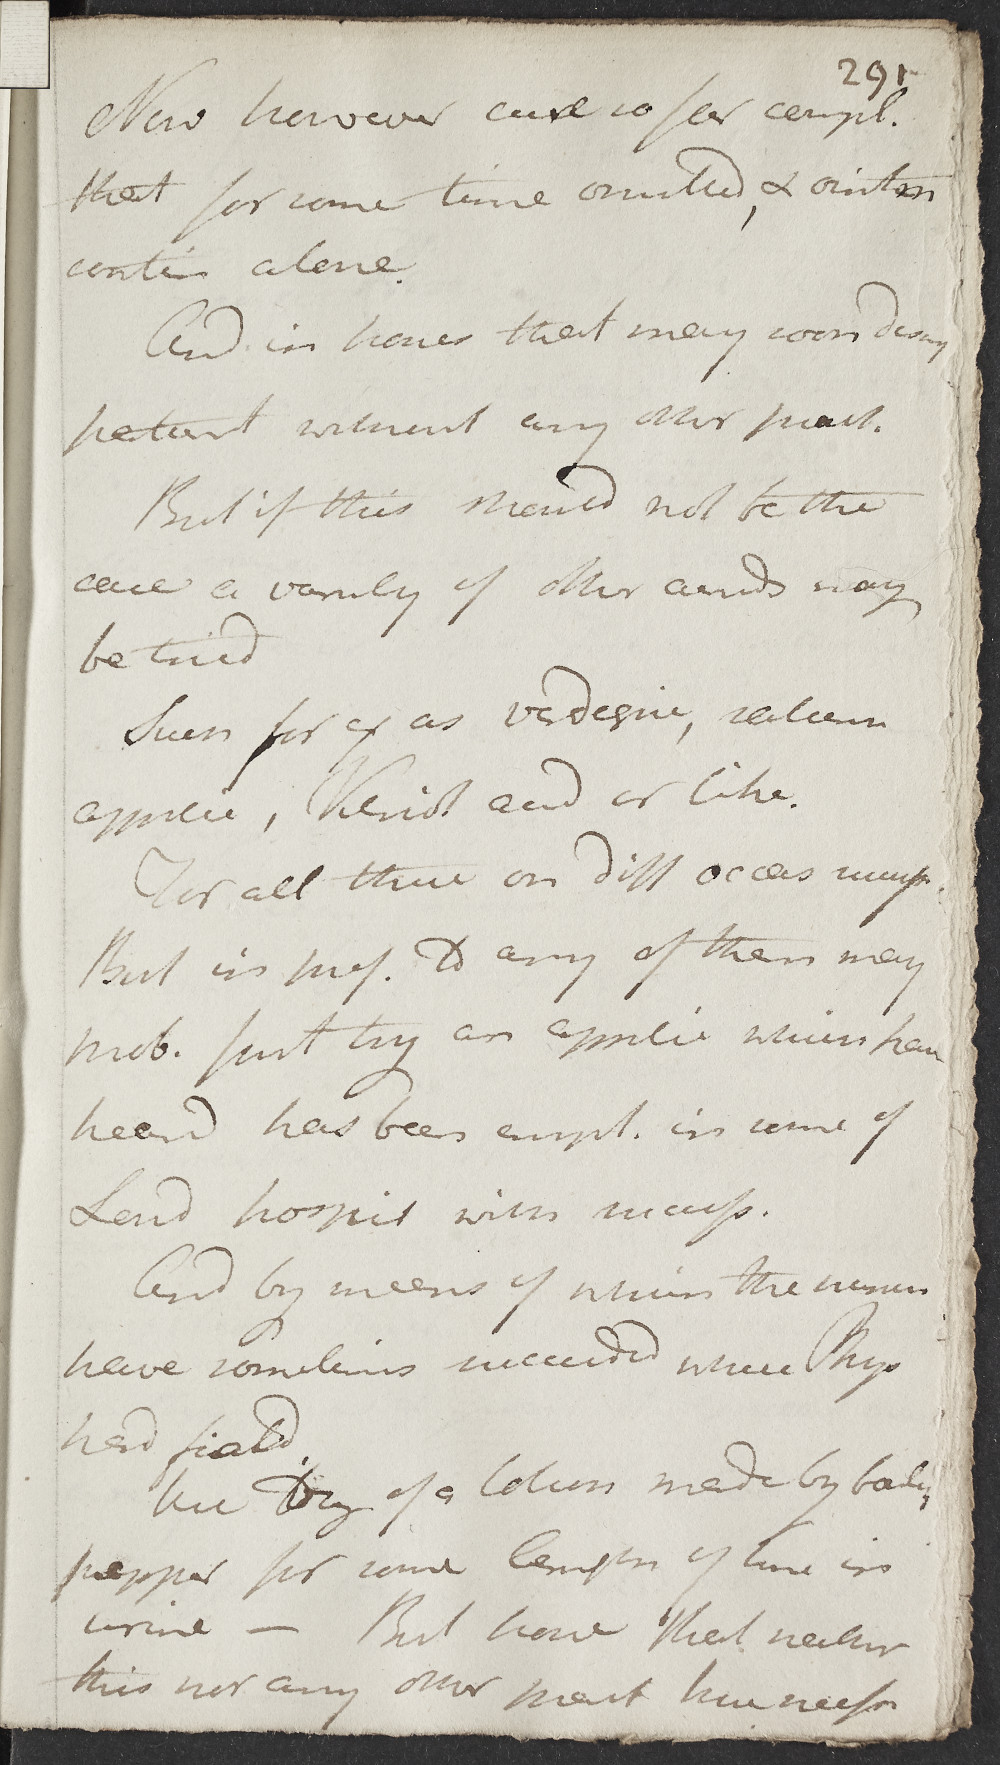 291
Now however cure so far compl.
that for some time omitted, & ointm
contin alone.
And in hopes that may soon disap
patient without any other pract.
But if this should not be the
case a variety of other acrids may
be tried
Such for ex as verdegrise, saturn
applic, Vitriol acid or like.
For all these on diff occas
But in pref. to any of them may
prob. just try an applic which have
heard has been empl. in some of
Lond hospit with success.
And by means of which the nurses
have sometimes succeeded where Phys
had failed.
I mean of a lotion made by boiling
pepper for some length of time in
urine — But hope that neither
this nor any other pract here necess